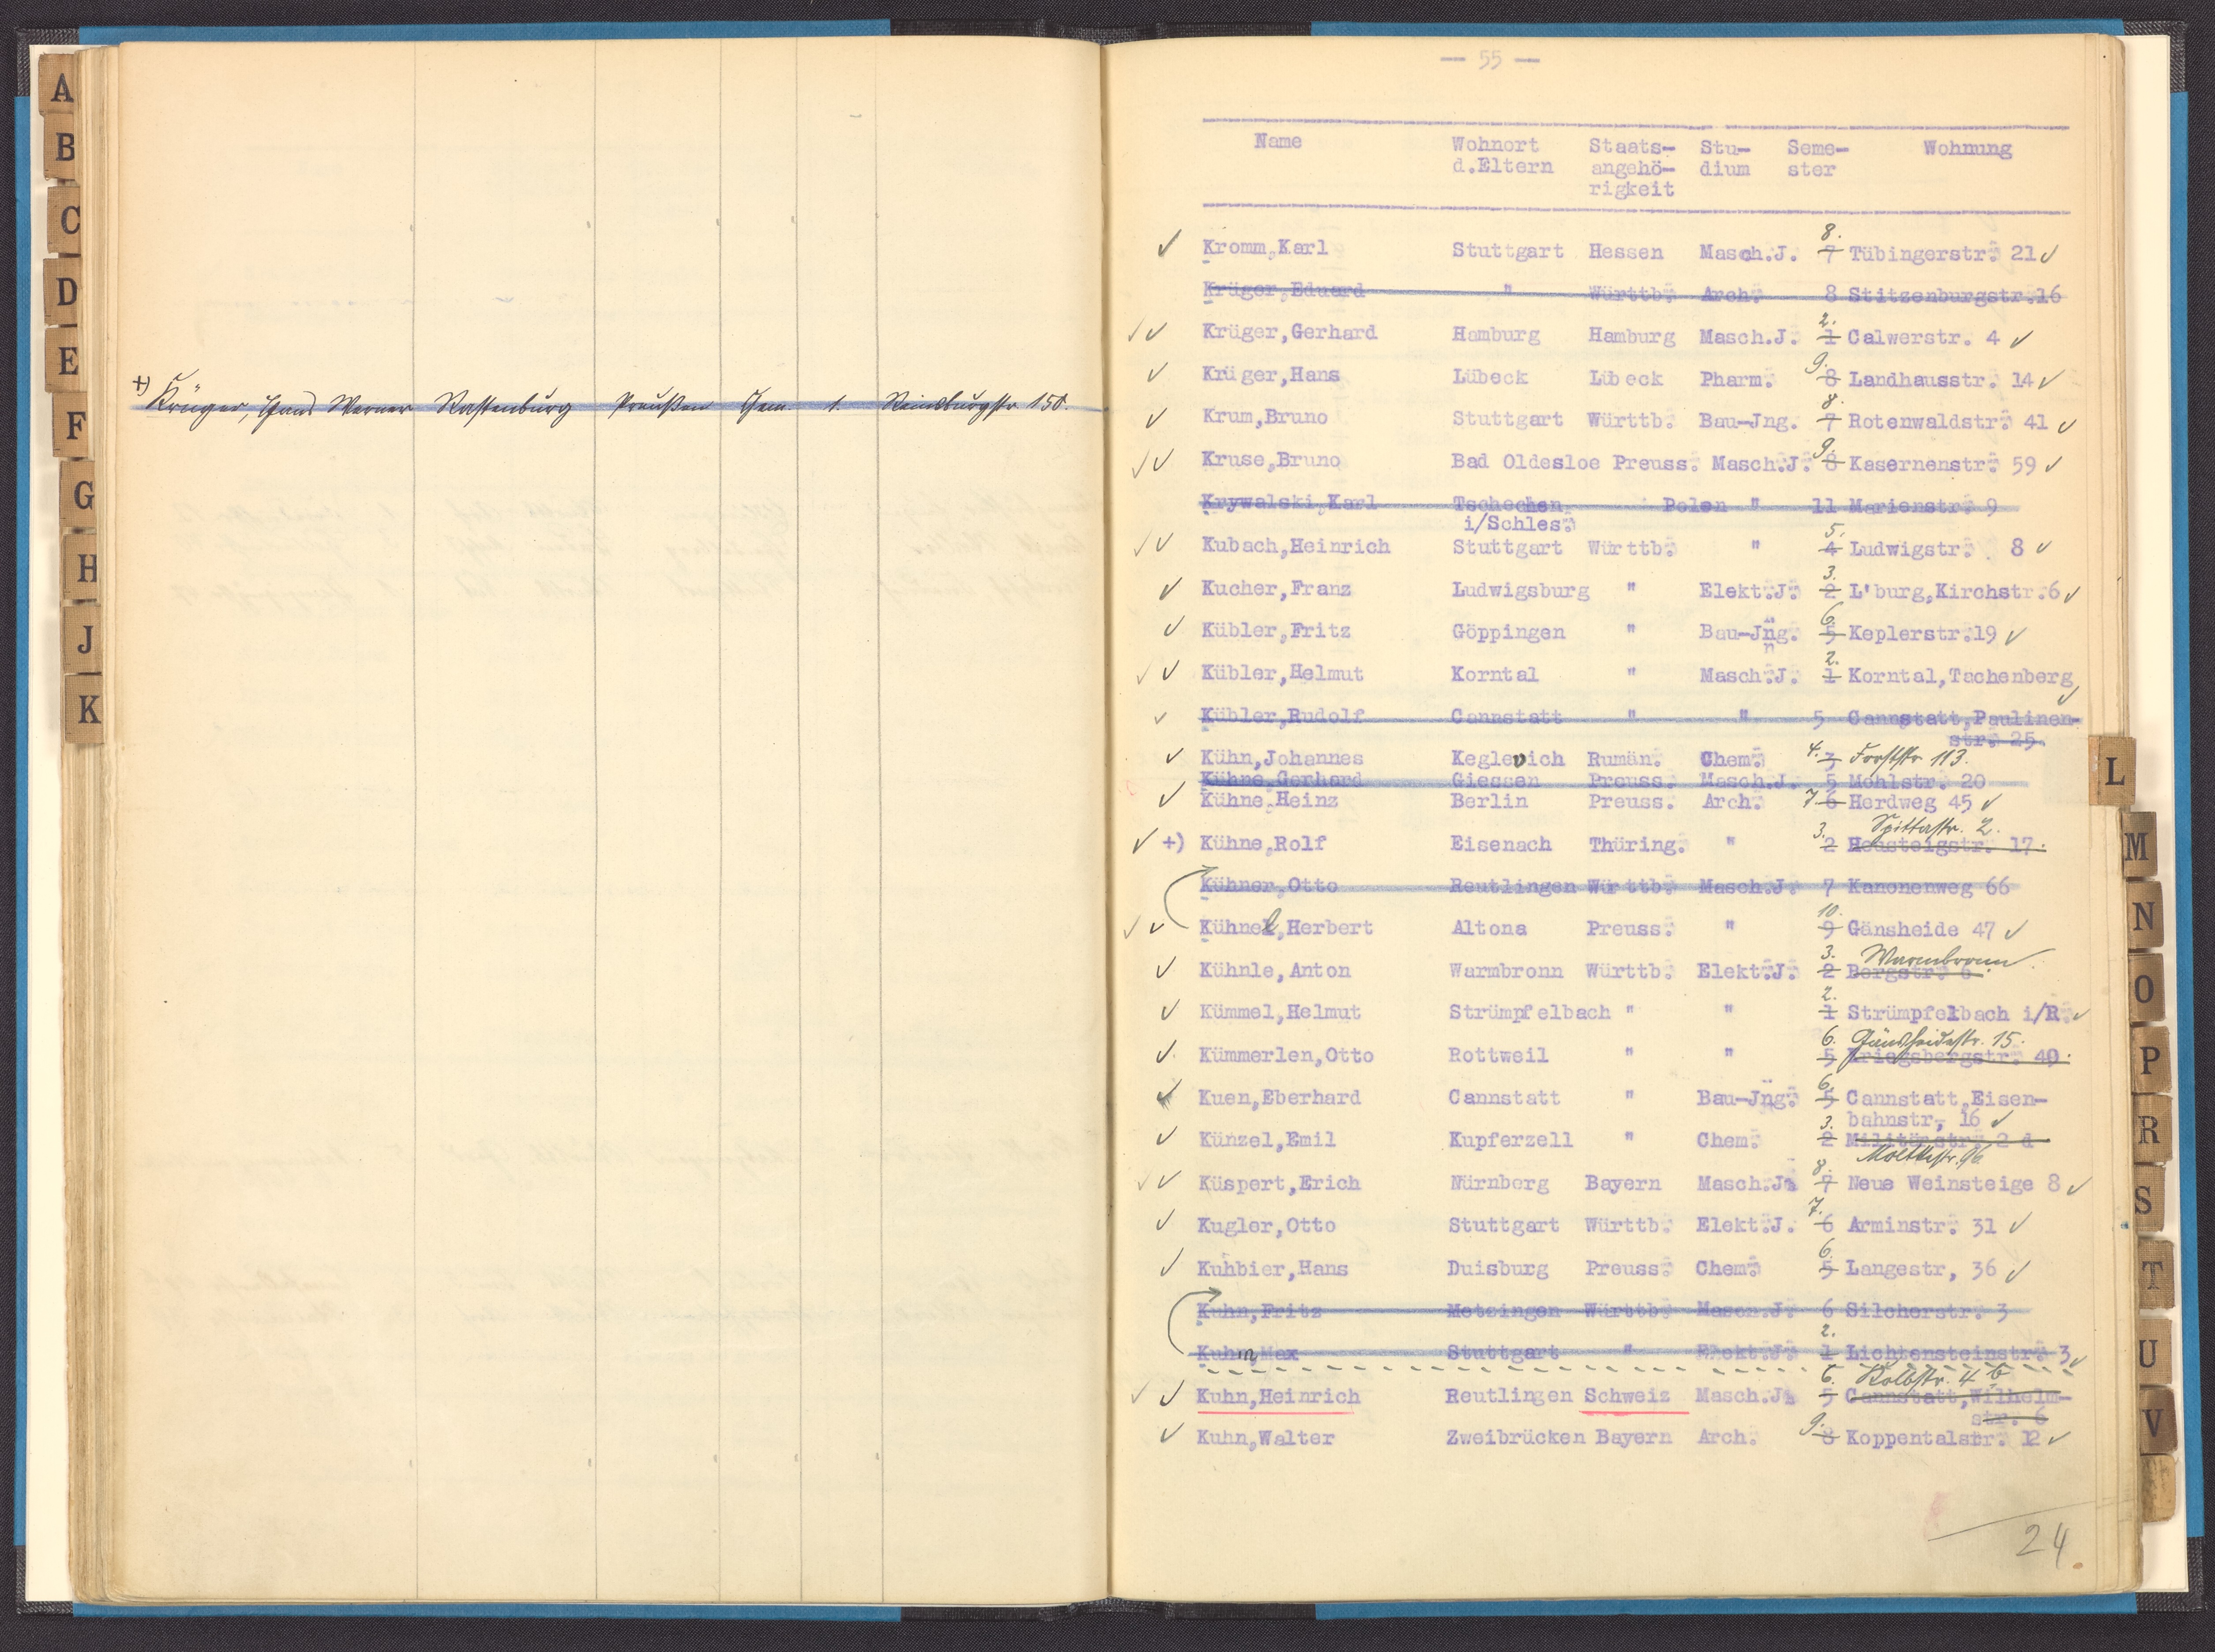 A
B
C
D
E
F
G
H
J
K
+) Krüger, Hans Werner Rastenburg Preußen Chem. 1. Reinsburgstr 150.
— 55 —
Name Wohnort Staats- Stu- Seme- Wohnung
d.Eltern angehö- dium ster
rigkeit
8.
Kromm,Karl Stuttgart Hessen Masch.J. 7 Tübingerstr. 21
Krüger,Eduard " Württb. Arch. 8 Stitzenburgstr.16
2.
Krüger,Gerhard Hamburg Hamburg Masch.J. 1 Calwerstr. 4
9.
Krüger,Hans Lübeck Lübeck Pharm. 8 Landhausstr. 14
8.
Krum,Bruno Stuttgart Württb. Bau-Jng. 7 Rotenwaldstr. 41
9.
Kruse,Bruno Bad Oldesloe Preuss. Masch.J. 8 Kasernenstr. 59
Krywalski,Karl Tschechen Polen " 11 Marienstr. 9
i/Schles.
5.
Kubach,Heinrich Stuttgart Württb. " 4 Ludwigstr. 8
3.
Kucher,Franz Ludwigsburg " Elekt.J. 2 L'burg,Kirchstr.6
6.
Kübler,Fritz Göppingen " Bau-Jng. 5 Keplerstr.19
n
2.
Kübler,Helmut Korntal " Masch.J. 1 Korntal,Tachenberg
Kübler,Rudolf Cannstatt " " 5 Cannstatt,Paulinen-
str. 25.
Kühn,Johannes Keglevich Rumän. Chem. 4. 3 Forststr 113.
Kühne,Gerhard Giessen Preuss. Masch.J. 5 Mohlstr. 20
Kühne,Heinz Berlin Preuss. Arch. 7 6 Herdweg 45
Spittastr. 2.
+) Kühne,Rolf Eisenach Thüring. " 3. 2 Heusteigstr. 17.
Kühner,Otto Reutlingen Württb. Masch.J. 7 Kanonenweg 66
10.
Kühnel,Herbert Altona Preuss. " 9 Gänsheide 47
3. Warmbronn
Kühnle,Anton Warmbronn Württb. Elekt.J. 2 Bergstr. 6
2.
Kümmel,Helmut Strümpfelbach " " 1 Strümpfelbach i/R.
6. Gänsheidestr. 15.
Kümmerlen,Otto Rottweil " " 5 Kriegsbergstr. 40.
6.
Kuen,Eberhard Cannstatt " Bau-Jng. 5 Cannstatt,Eisen-
bahnstr, 16
3.
Künzel,Emil Kupferzell " Chem. 2 Militärstr. 2 d
Moltkestr. 96
8.
Küspert,Erich Nürnberg Bayern Masch.J. 7 Neue Weinsteige 8
7.
Kugler,Otto Stuttgart Württb. Elekt.J. 6 Arminstr. 31
6.
Kuhbier,Hans Duisburg Preuss. Chem. 5 Langestr, 36
Kuhn,Fritz Metzingen Württb. Masch.J. 6 Silcherstr. 3
2.
Kuhm,Max Stuttgart " Elekt.J. 1 Lichtensteinstr. 3
6. Kolbstr. 4 b
Kuhn,Heinrich Reutlingen Schweiz Masch.J. 5 Cannstatt,Wilhelm-
str. 6
9.
Kuhn,Walter Zweibrücken Bayern Arch. 8 Koppentalstr. 12
24.
L
M
N
O
P
R
S
T
U
V